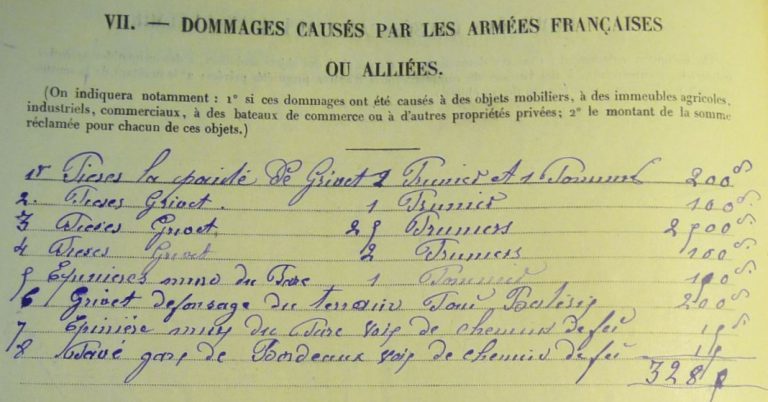 VII. — DOMMAGES CAUSÉS PAR LES ARMÉES FRANÇAISES
OU ALLIÉES.
(On indiquera notamment : 1° si ces dommages ont été causés à des objets mobiliers, à des immeubles agricoles,
industriels, commerciaux, à des bateaux de commerce ou à d'autres propriétés privées; 2° le montant de la somme
réclamée pour chacun de ces objets.)
Pieses la de Grivet 2 Pruniers Et 1 Pommier 200
2. Pieses Grivet. 1 Prunier 100
3 Pieses Grivet 25 Pruniers 2500
4 Pieses Grivet 2 Pruniers
5 Epinieres murs du Parc 1 Pommier
6 Grivet defonsage du terrain 200
7 Epinière murs du Parc voie de chemin de fer
8 Pavé gare de Bordeaux voie de chemin de fer
328